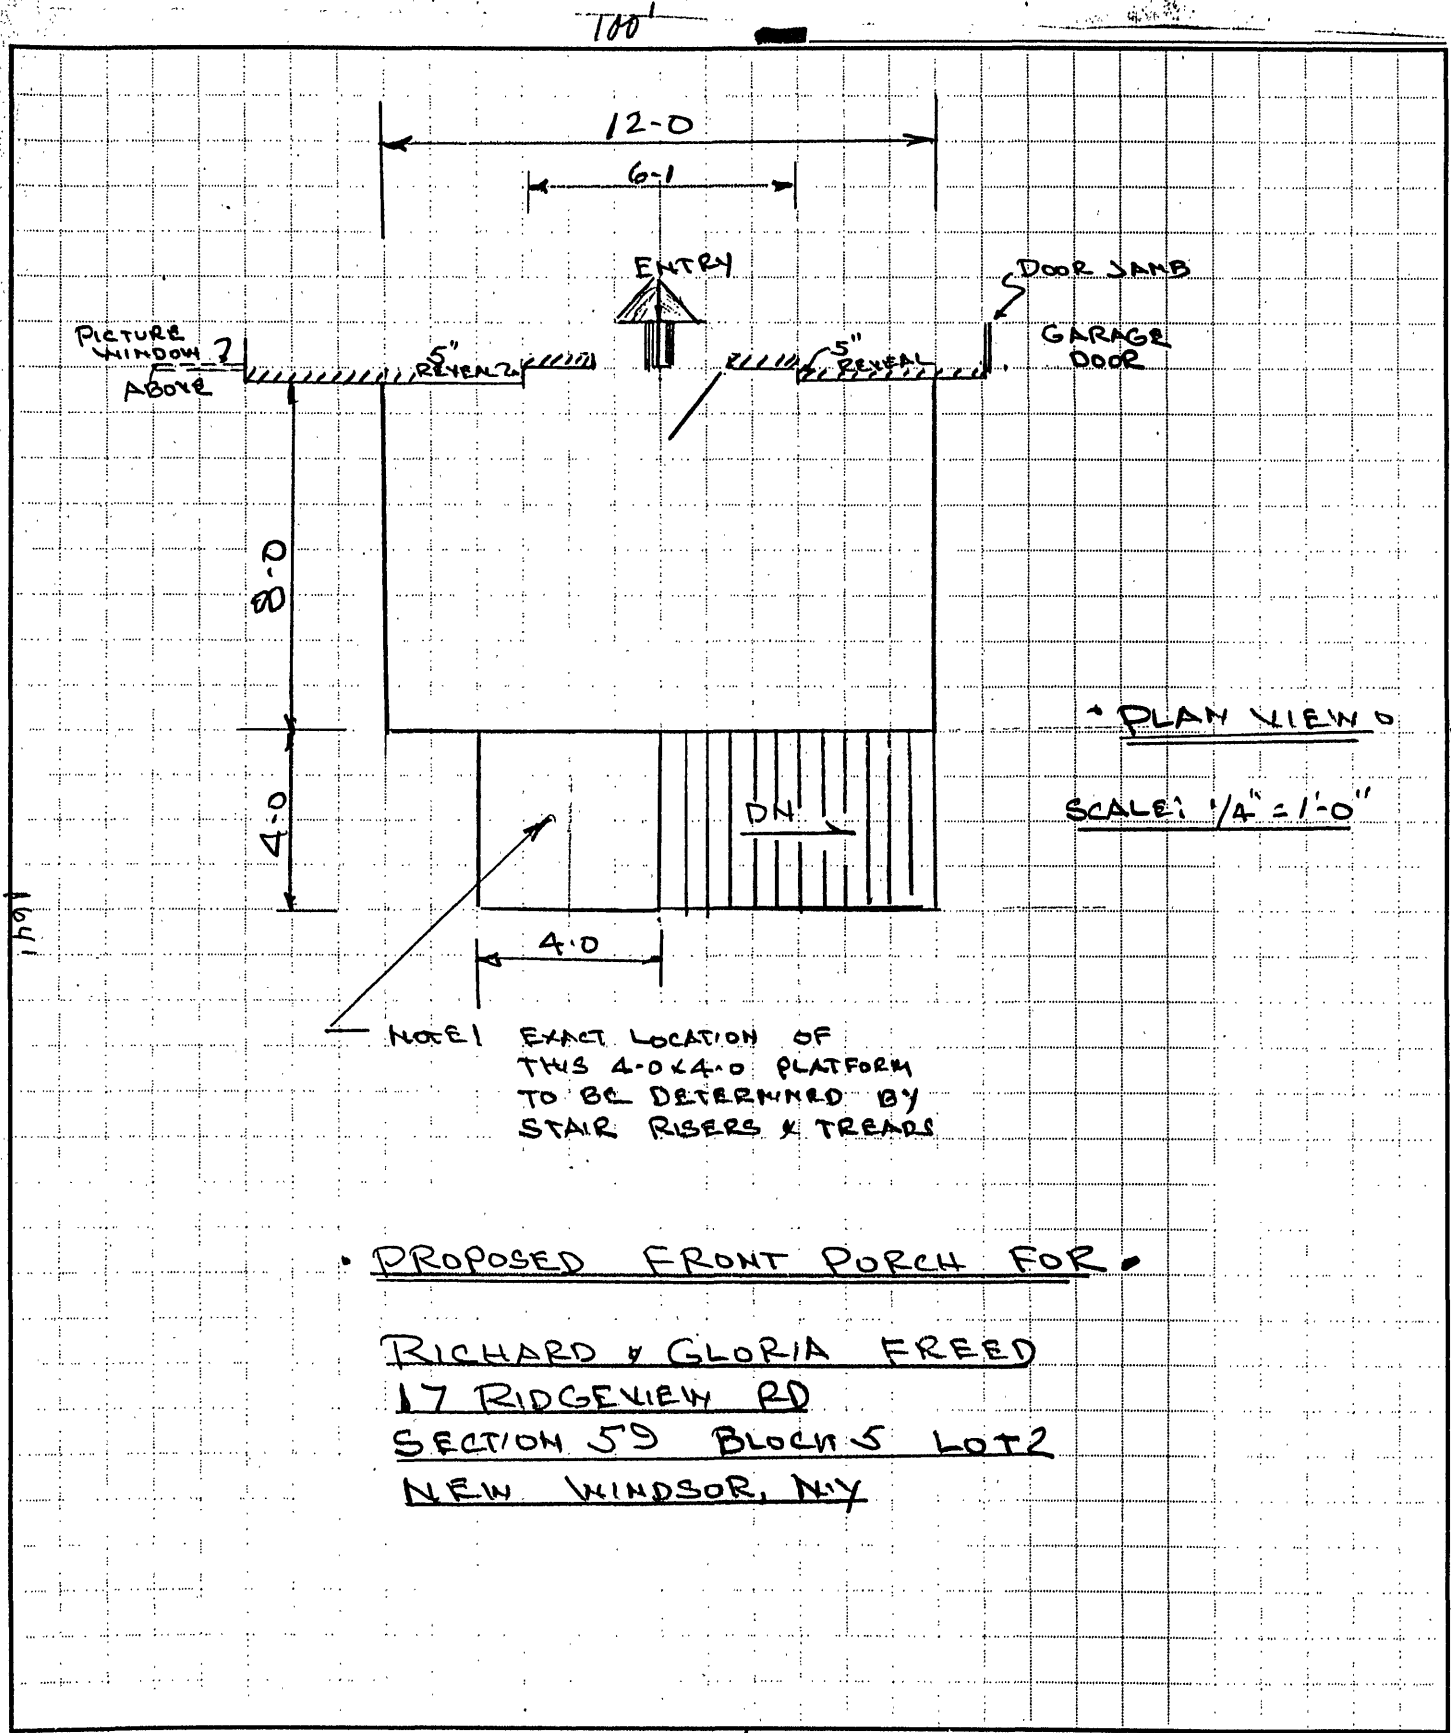 100'
12-0
6-1
ENTRY
DOOR JAMB
PICTURE
WINDOW
ABOVE
5"
REVEAL
5"
REVEAL
GARAGE
DOOR
8-0
• PLAN VIEW •
4-0
DN
SCALE: 1/4" = 1'-0"
4.0
NOTE! EXACT LOCATION OF
THIS 4-0x4-0 PLATFORM
TO BE DETERMINED BY
STAIR RISERS & TREADS
• PROPOSED FRONT PORCH FOR •
RICHARD & GLORIA FREED
17 RIDGEVIEW RD
SECTION 59 BLOCK 5 LOT 2
NEW WINDSOR, N.Y